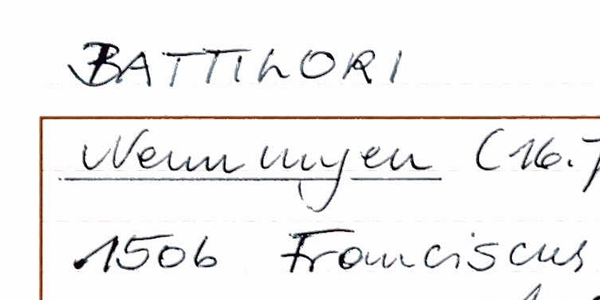 BATTILORI
Nennungen (16.
1506 Franciscus